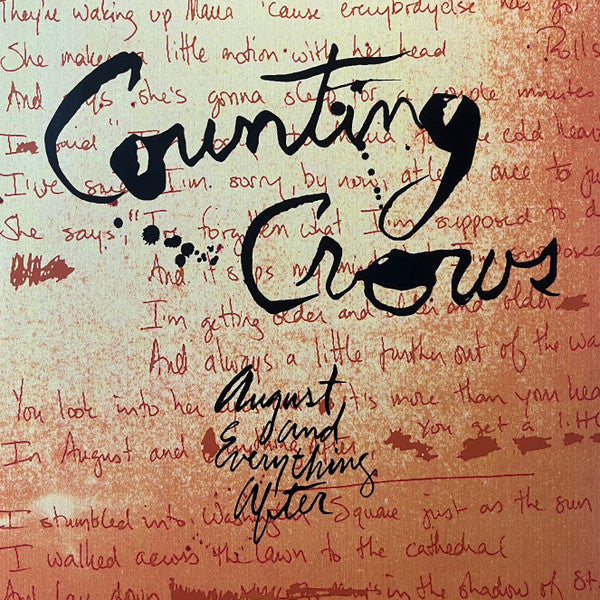 They're waking up Maria 'cause everybody else has got
She makes a little motion with her head
Rolls
And says she's gonna sleep for a couple minutes
Counting
I've said I'm sorry by now, at least once to
She says, "I've forgotten what I'm supposed to d
Crows
And it slips my mind
I'm getting older and older and older
And always a little further out of the wa
You look into her it's more than your hea
August
and
Everything
After
In August and
You get a litt
I stumbled into Washington Square just as the sun
I walked across the lawn to the cathedral
And lay down in the shadow of St